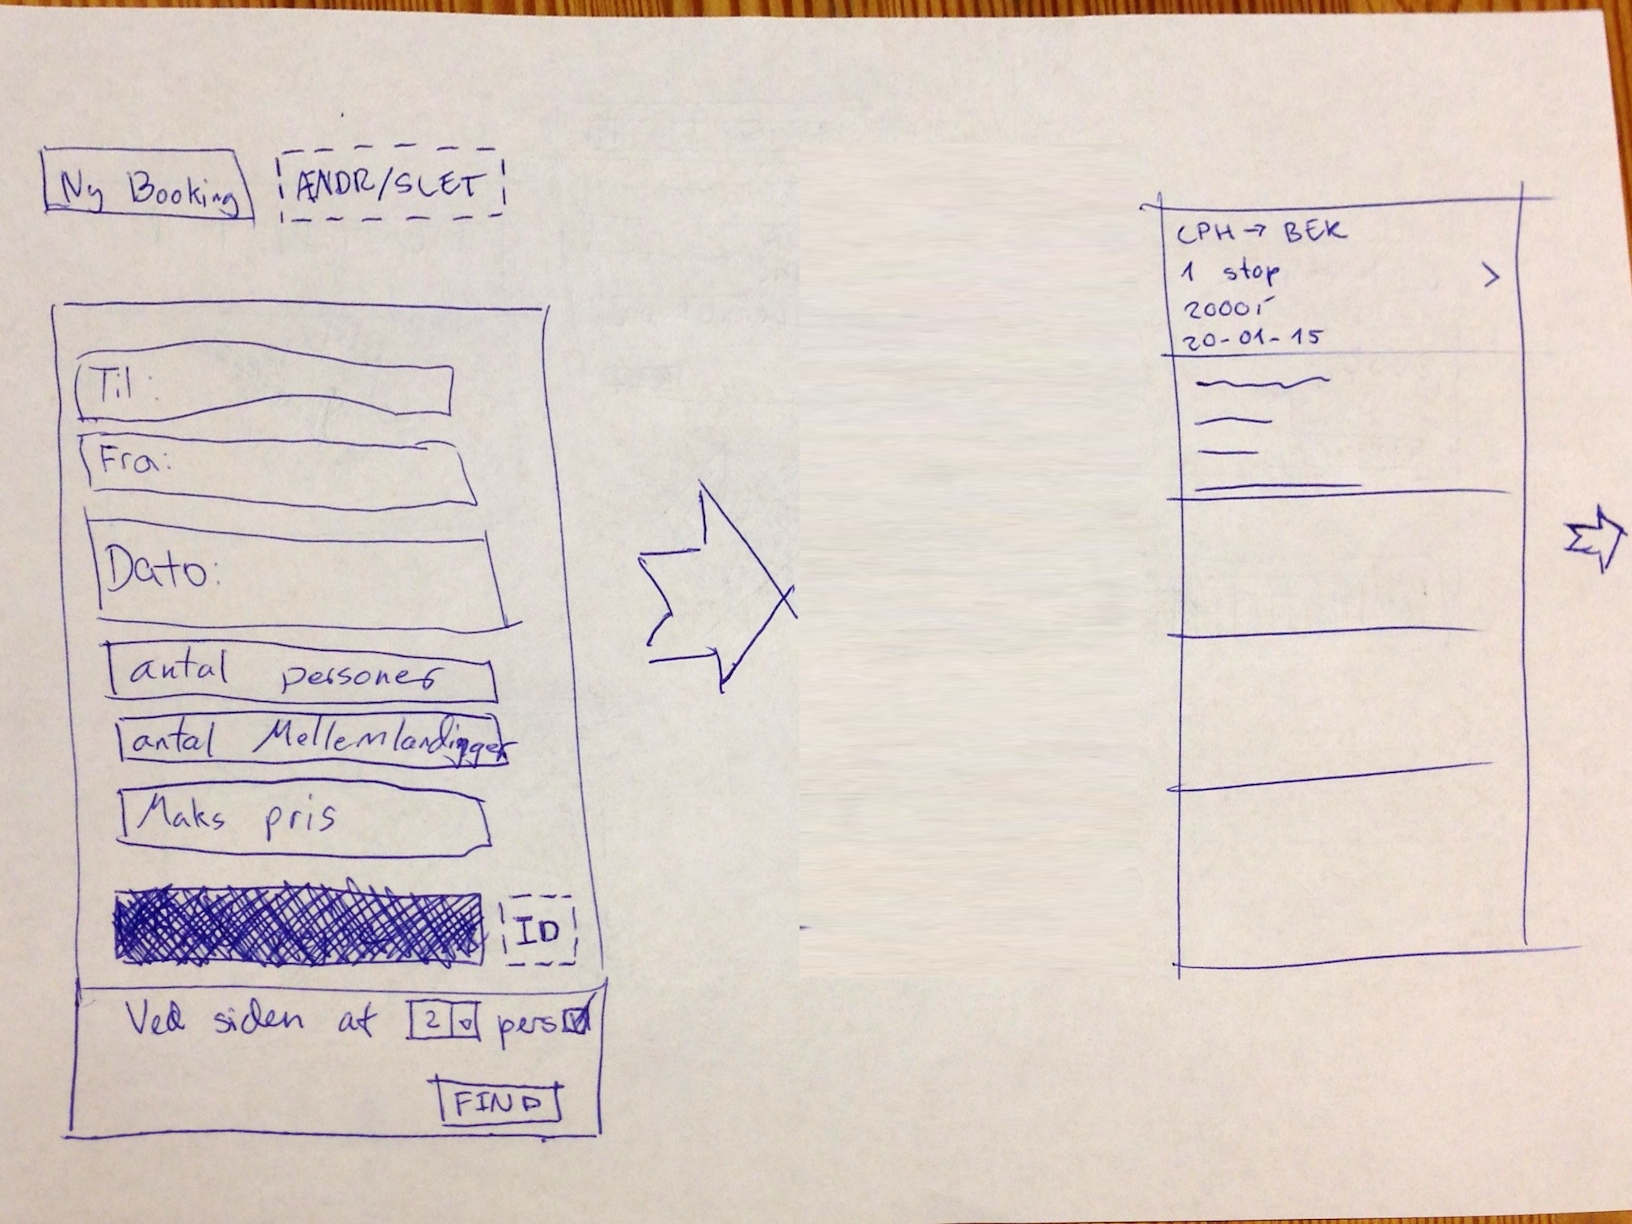 Ny Booking
ÆNDR/SLET
Til:
Fra:
Dato:
antal personer
antal Mellemlandigger
Maks pris
ID
Ved siden af 2 pers
FIND
CPH → BEK
1 stop
20-01-15